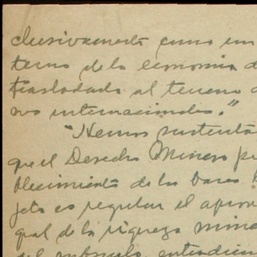 clusivamente como un
tema de la economía d
trasladada al terreno d
vos internacionales."
"Hemos sustenta
que el Derecho Minero pr
blecimiento de las bases
jeto es regular el aprov
gral de la riqueza mine
del subsuelo, entendien